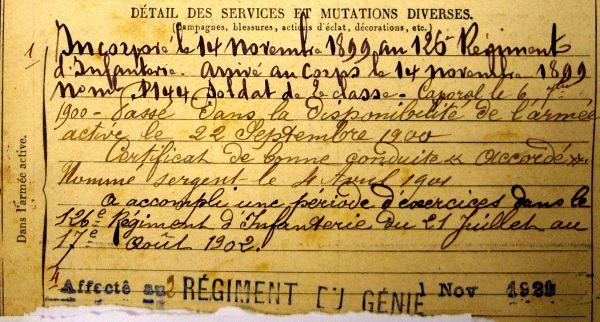 DÉTAIL DES SERVICES ET MUTATIONS DIVERSES.
(Campagnes, blessures, actions d'éclat, décorations, etc.)
Dans l'armée active.
Incorporé le 14 novembre 1899 au 126e Régiment
d'Infanterie. Arrivé au Corps le 14 novembre 1899
Soldat de 2e classe - Caporal le 6 7bre
1900 - Passé dans la disponibilité de l'armée
active le 22 Septembre 1900
Certificat de bonne conduite "accordé".
Nommé sergent le 4 Avril 1901
a accompli une période d'exercices dans le
126e Régiment d'Infanterie du 21 Juillet au
17e août 1902.
Affecté au 2 RÉGIMENT DU GÉNIE 1 Nov